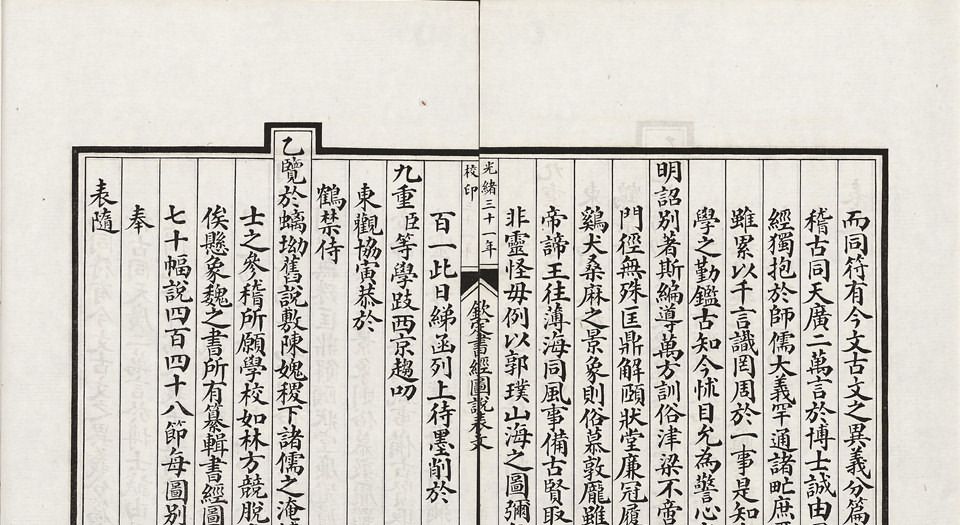 而同符有今文古文之異義分篇
稽古同天廣二萬言於博士誠由
經獨抱於師儒大義罕通諸甿庶
雖累以千言識罔周於一事是知
學之勤鑑古知今怵目允為警心
明詔別著斯編導萬方訓俗津梁不啻
門徑無殊匡鼎解頤狀堂廉冠履
鷄犬桑麻之景象則俗慕敦龐雖
帝諦王往薄海同風事備古賢取
非靈怪毋例以郭璞山海之圖彌
光緒三十一年
校印
欽定書經圖說表文
百一此日綈函列上待墨削於
九重臣等學跂西京趨叨
東觀協寅恭於
鶴禁侍
乙覽於螭坳舊說敷陳媿稷下諸儒之淹
士之參稽所願學校如林方競脫
俟懸象魏之書所有纂輯書經圖
七十幅說四百四十八節每圖別
奉
表隨